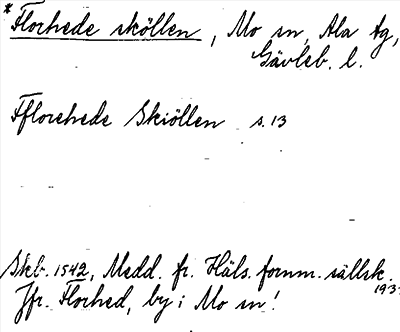 *Florhede sköllen, Mo sn, Ala tg,
Gävleb. l.
Fflorehede Skiöllen s. 13
Skb. 1542, Medd. fr. Häls. fornm. sällsk.
193
Jfr. Florhed, by i Mo sn!